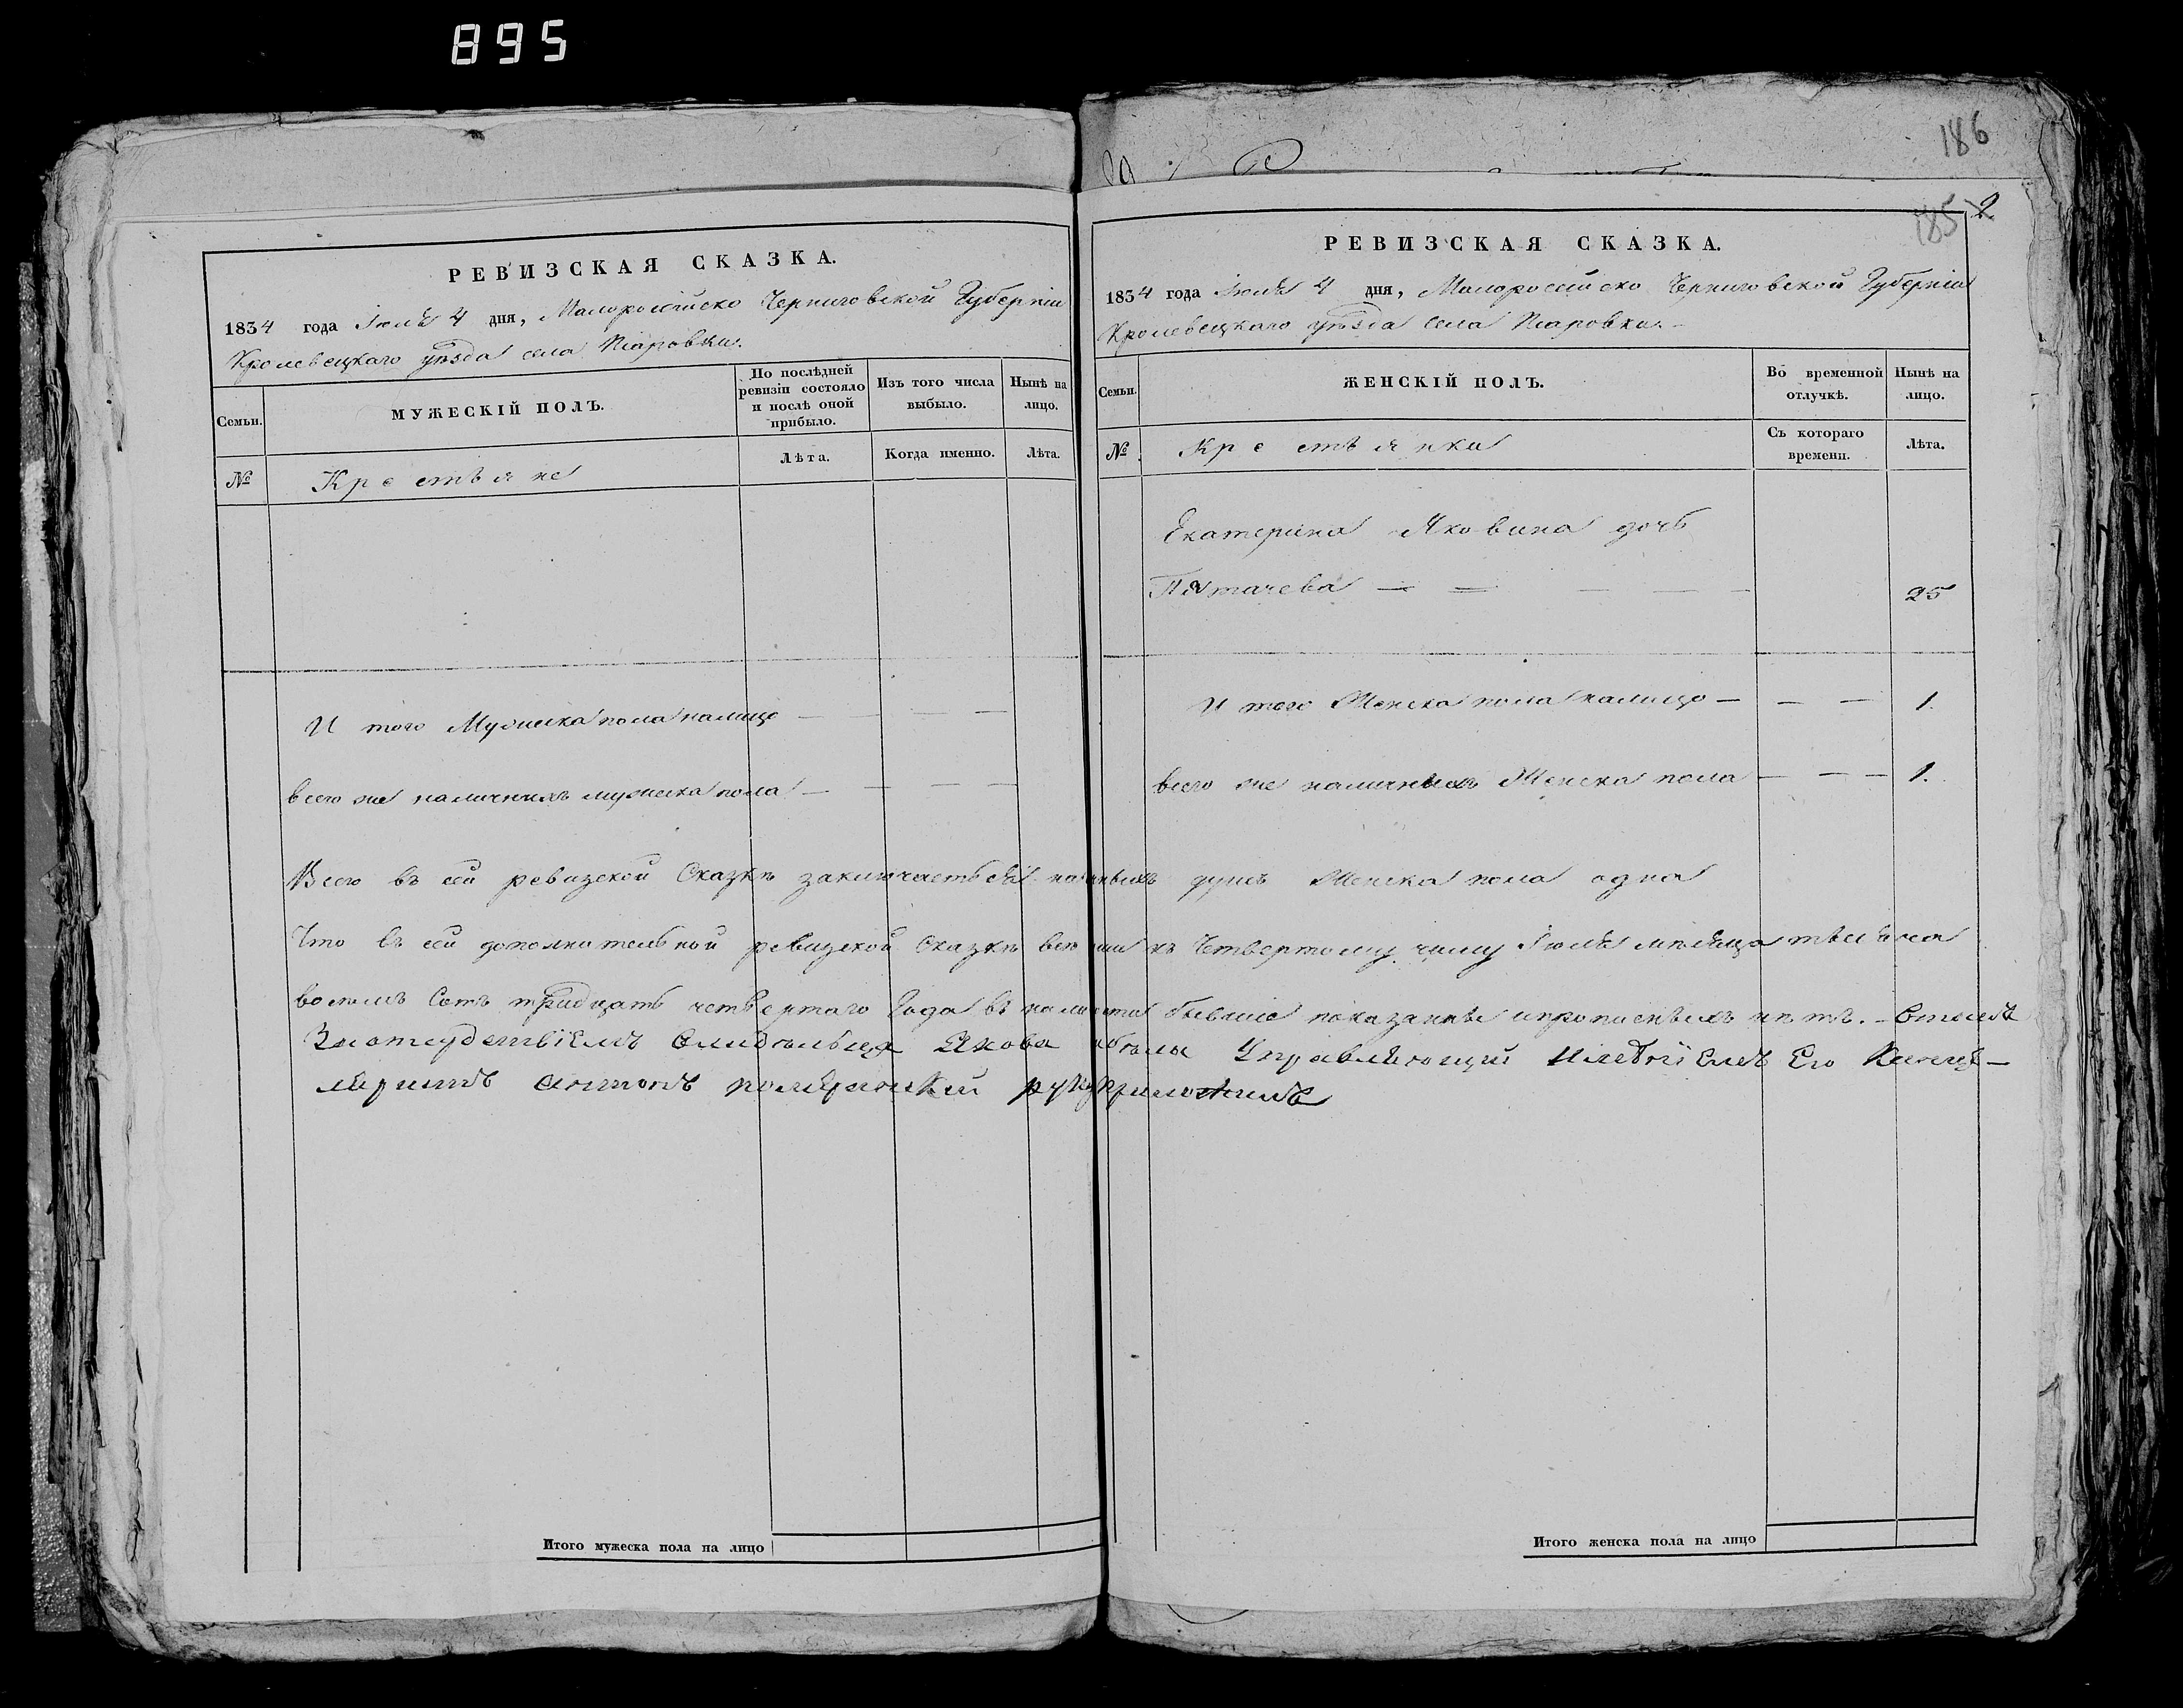 895
186
185 2
РЕВИЗСКАЯ СКАЗКА.
1834 года Іюля 4 дня, Малоросійско Черниговской Губерніи
Кролевецкаго уѣзда села
Семьи.
МУЖЕСКІЙ ПОЛЪ.
По послѣдней ревизіи состояло и послѣ оной прибыло.
Изъ того числа выбыло.
Нынѣ на лицо.
№
Крестьяне
Лѣта.
Когда именно.
Лѣта.
И того Мужеска пола налицо — — — —
всего же наличныхъ мужеска пола — — — —
РЕВИЗСКАЯ СКАЗКА.
1834 года Іюля 4 дня, Малоросійско Черниговской Губерніи
Кролевецкаго уѣзда села
Семьи.
ЖЕНСКІЙ ПОЛЪ.
Во временной отлучкѣ.
Нынѣ на лицо.
№
Крестьянки
Съ котораго времени.
Лѣта.
Екатерина Яковина дочь
— — — — — 25
И того Женска пола налицо — — — 1.
всего же наличныхъ Женска пола — — — 1.
Всего въ сей ревизской Сказкѣ заключаеться душъ Женска пола одна
Что въ сей дополнительной ревизской Сказкѣ всѣ къ Четвертому числу Іюля мѣсяца тысяча
восемь Сотъ тридцать четвертаго Года въ бывшіе показанны нѣтъ. —
Якова Управляющій Имѣніемъ Его
Антонъ руку приложилъ
Итого мужеска пола на лицо
Итого женска пола на лицо